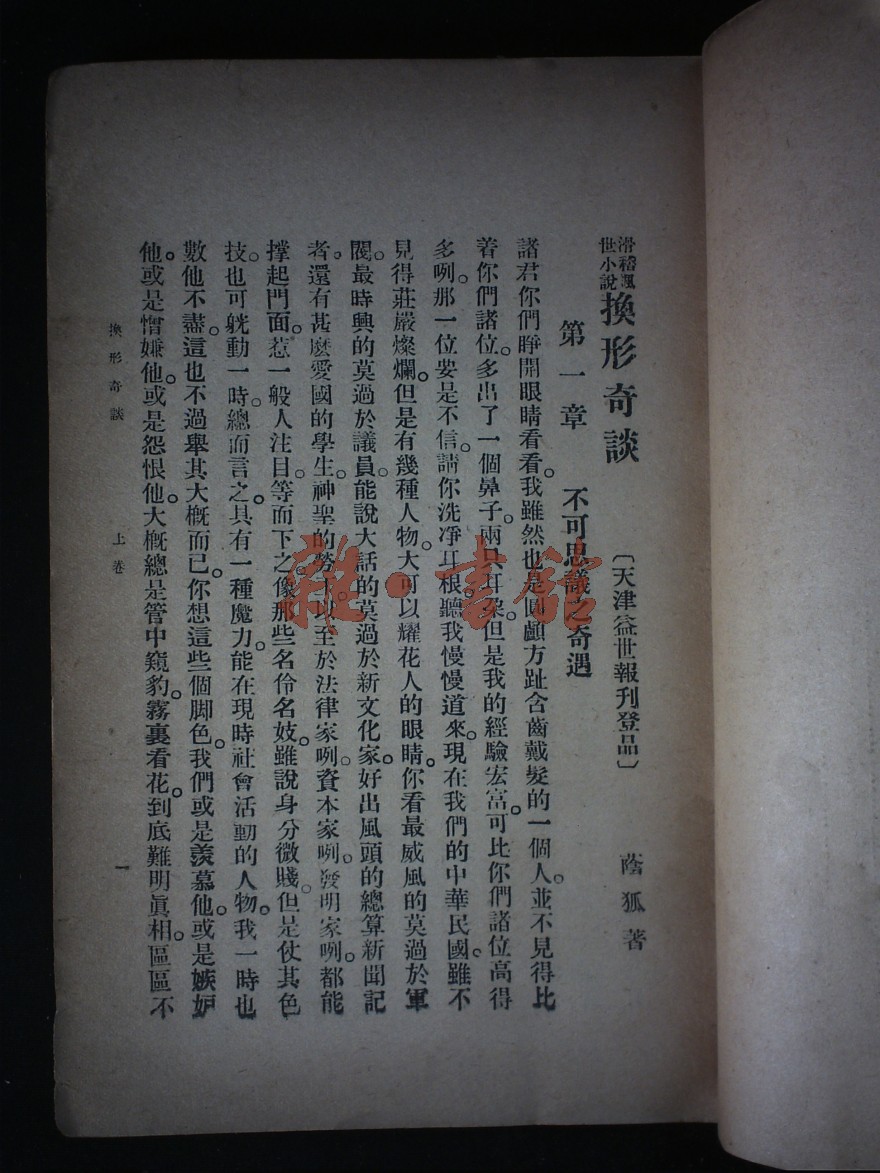 滑稽諷世小說 換形奇談
〔天津益世報刊登品〕
蔭狐著
第一章 不可思議之奇遇
諸君你們睜開眼睛看看。我雖然也是圓顱方趾含齒戴髮的一個人。並不見得比
着你們諸位。多出了一個鼻子。兩只耳朶。但是我的經驗宏富。可比你們諸位高得
多咧。那一位要是不信。請你洗凈耳根。聽我慢慢道來。現在我們的中華民國。雖不
見得莊嚴燦爛。但是有幾種人物。大可以耀花人的眼睛。你看最威風的莫過於軍
閥。最時興的莫過於議員。能說大話的莫過於新文化家。好出風頭的總算新聞記
者。還有甚麽愛國的學生。神聖的勞工。以至於法律家咧。資本家咧。發明家咧。都能
撑起門面。惹一般人注目。等而下之。像那些名伶名妓。雖說身分微賤。但是仗其色
技。也可躭動一時。總而言之。具有一種魔力。能在現時社會活動的人物。我一時也
數他不盡。這也不過舉其大概而已。你想這些個脚色。我們或是羨慕他。或是嫉妒
他。或是憎嫌他。或是怨恨他。大概總是管中窺豹。霧裏看花。到底難明眞相。區區不
換形奇談 上卷 一
雜·書館